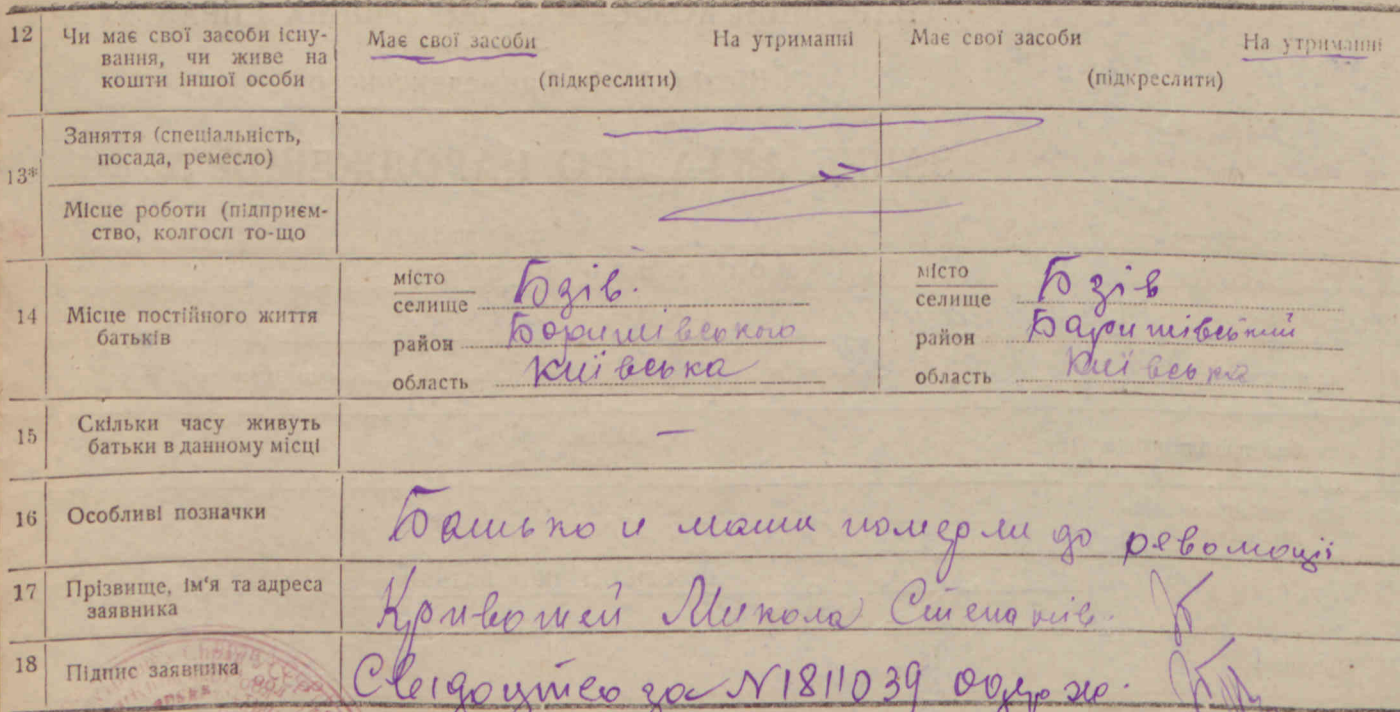 12 Чи має свої засоби існу- Має свої засоби На утриманні Має свої засоби На утриманні
вання, чи живе на
кошти іншої особи (підкреслити) (підкреслити)
13* Заняття (спеціальність,
посада, ремесло)
Місце роботи (підприєм-
ство, колгосп то-що
14 Місце постійного життя
батьків
місто
селище Бзів.
район Боришівського
область Київська
місто
селище Бзів
район Баришівський
область Київська
15 Скільки часу живуть
батьки в данному місці —
16 Особливі позначки Батько и мати померли до революції
17 Прізвище, ім'я та адреса
заявника Микола Степанів.
18 Підпис заявника Свідоцтво за N1811039 одерж.